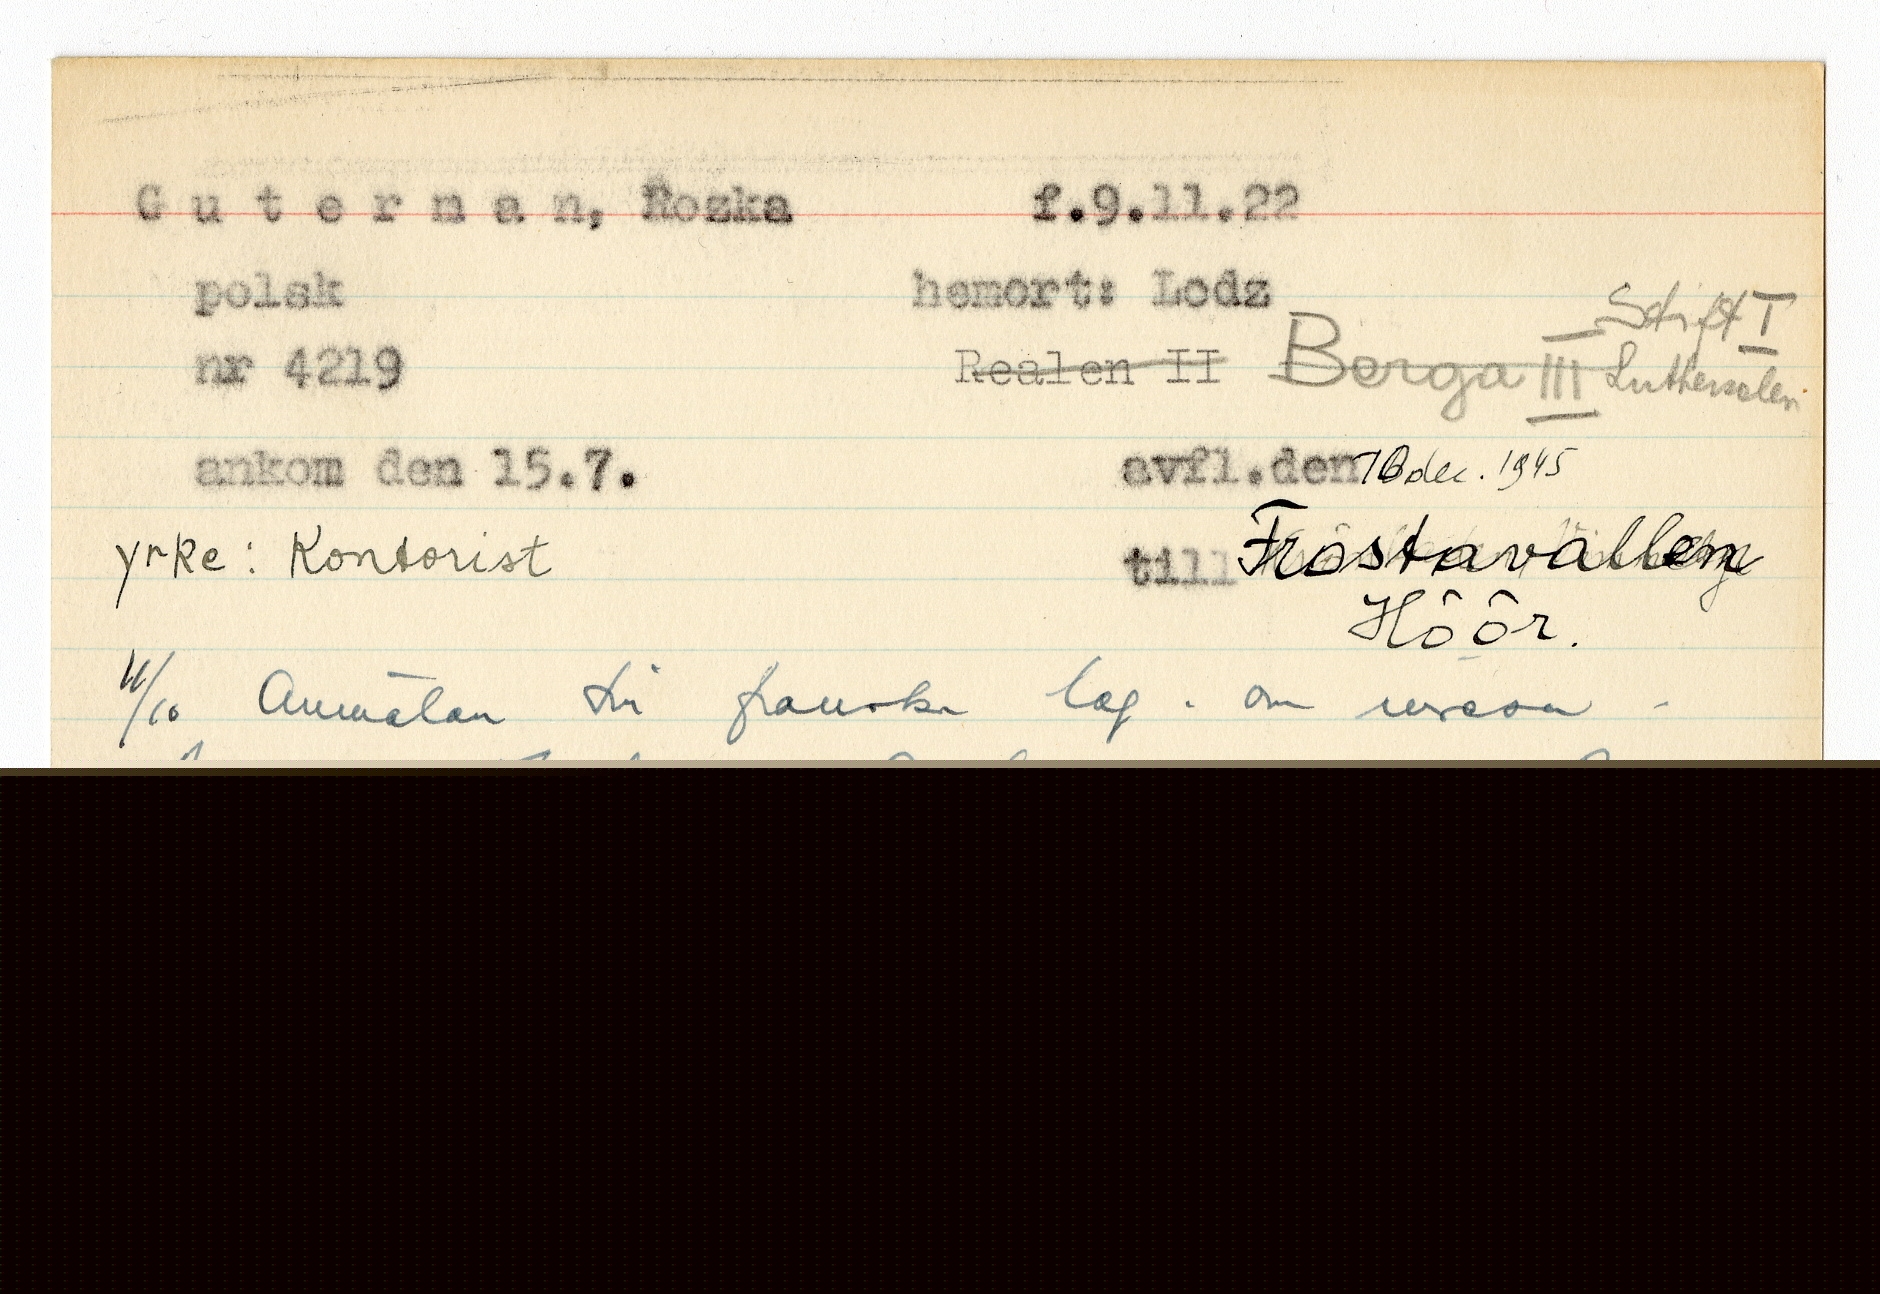 G u t e r m a n, Roska f.9.11.22
polsk hemort: Lodz
Stift I
nr 4219 Realen II Berga III Luthersalen
ankom den 15.7. avfl.den 10 dec. 1945
yrke: Kontorist till Frostavallen
Höör.
11/10 Anmälan till franska leg. om